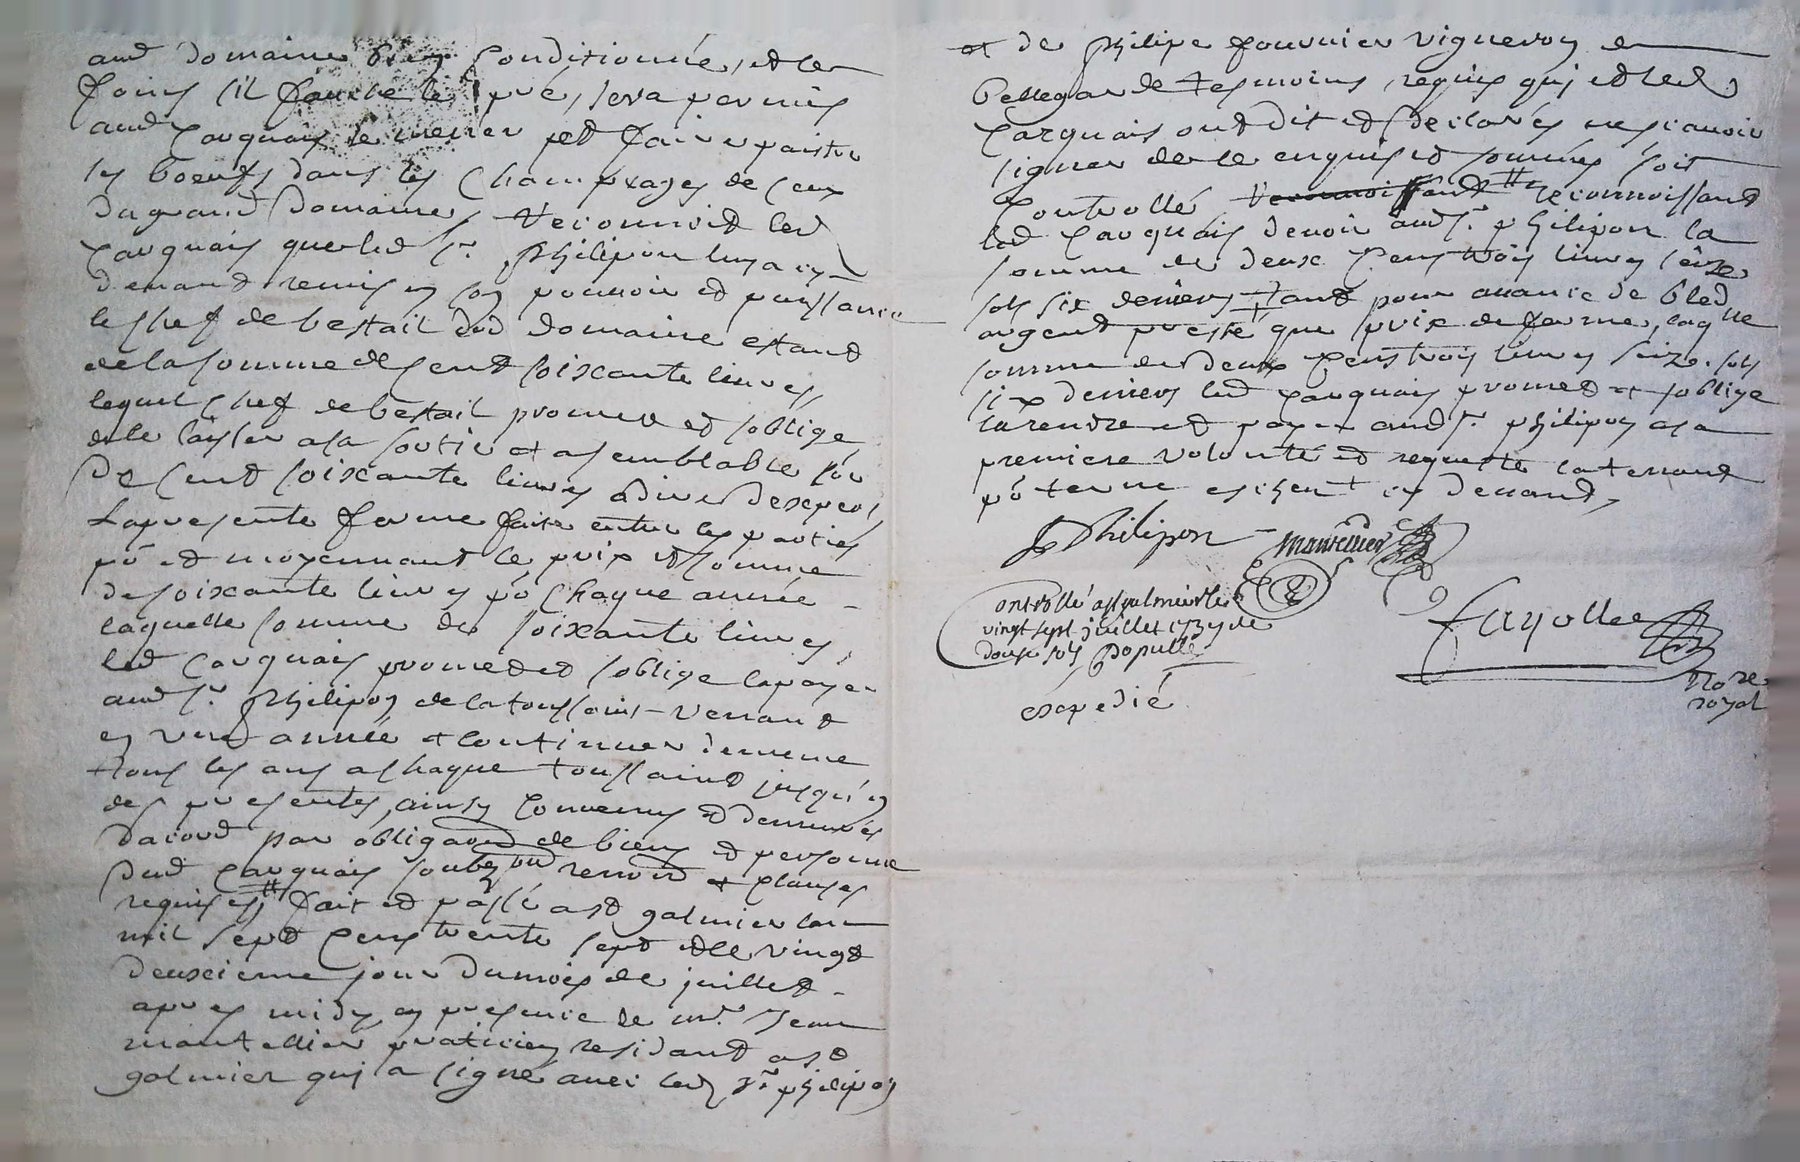 aud domaine bien conditionné, et les
foins s'il fauche le pré, sera permis
aud Carquais de mener et faire paistre
les boeufs dans les Champéages de ceux
du grand domaine, Reconnoit led
Carquais que led Sr. philipon luy a cy
devant remis en son pouvoir et puissance
le chef de bestail dud domaine estant
de la somme de Cent soixante livres,
lequel chef de bestail promet et s'oblige
de le laisser a sa sortie et a semblable
de Cent soixante livres a dire dexpers,
La presente ferme faite entre les parties
po et moyennant le prix et somme
de soixante livres po Chaque année
laquelle somme de soixante livres,
led Carquais promet et s'oblige la payer
aud Sr. philipon de la toussaint venant
en une année et continuer de meme
tous les ans a chaque toussaint jusqu'a
des presentes, ainsy Convenus et demeurés
dacord par obligaon de biens et personne
dud Carquais renon et clauses
requises, # fait et passé a st galmier lan
mil sept Cens trente sept et le vingt
deuxieme jour du mois de juillet
apres midy en presence de mr. Jean
mantellier praticien residant a st
galmier qui a signé avec led Sr philipon
et de philipe fournier vigneron de
bellegarde tesmoins, requis qui et led
Carquais ont dit et declarés ne scavoir
signer de ce enquis et sommés soit
Controllé reconnoissant # reconnoissant
led Carquais devoir aud Sr. philipon la
somme de deux Cens trois livres seize
sols six deniers tant pour avance de bled
argent presté que prix de ferme, laquelle
somme de deux Cens trois livres seize sols
six deniers led Carquais promet et soblige
la rendre et payer aud Sr. philipon a sa
premiere volonté et requeste la tenant
po terme echeut cy devant,
Philipon
Mantellier
Controllé a st galmier le
vingt sept juillet 1737 de
douze sols Populle
Fayolle
Nore
royal
expedié